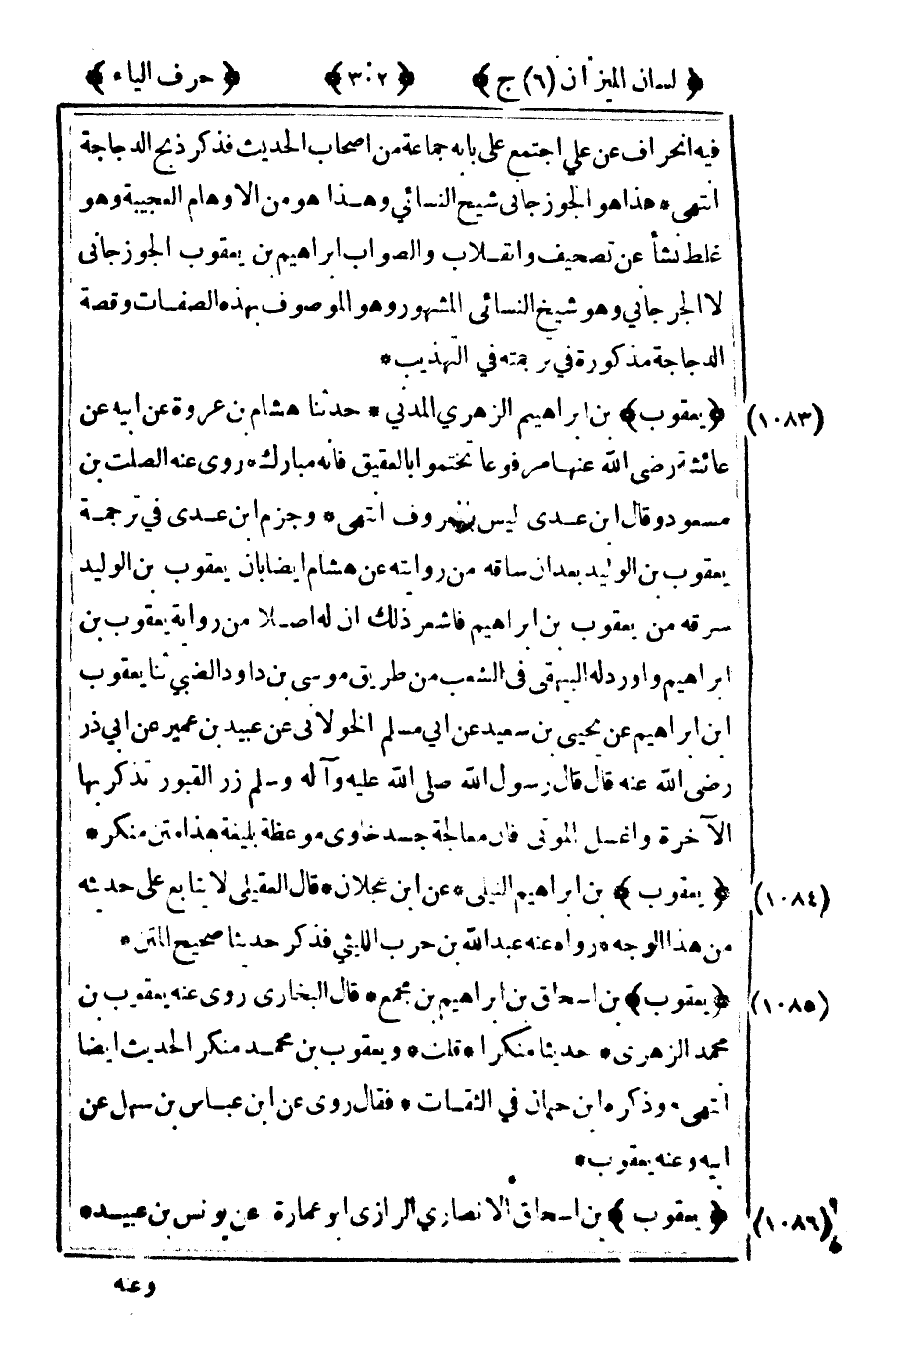 ﴿ لسان الميزان (٦) ج ﴾ ﴿ ٣٠٢ ﴾ ﴿ حرف الياء ﴾
فيه انحراف عن علي اجتمع على بابه جماعة من اصحاب الحديث فذكر ذبح الدجاجة
انتهى * هذا هو الجوزجانى شيخ النسائي وهذا هو من الاوهام العجيبة وهو
غلط نشأ عن تصحيف وانقلاب والصواب ابراهيم بن يعقوب الجوزجانى
لا الجرجاني وهو شيخ النسائى المشهور وهو الموصوف بهذه الصفات وقصة
الدجاجة مذكورة في ترجمته في التهذيب *
(١٠٨٣) ﴿ يعقوب ﴾ بن ابراهيم الزهري المدني * حدثنا هشام بن عروة عن ابيه عن
عائشة رضى الله عنها مرفوعا تختموا بالعقيق فانه مبارك * روى عنه الصلت بن
مسعود وقال ابن عدى ليس بمعروف انتهى * وجزم ابن عدى في ترجمة
يعقوب بن الوليد بعد ان ساقه من روايته عن هشام ايضا بان يعقوب بن الوليد
سرقه من يعقوب بن ابراهيم فاشعر ذلك ان له اصلا من رواية يعقوب بن
ابراهيم واورد له البيهقى فى الشعب من طريق موسى بن داود الضبي ثنا يعقوب
ابن ابراهيم عن يحيى بن سعيد عن ابي مسلم الخولانى عن عبيد بن عمير عن ابي ذر
رضى الله عنه قال قال رسول الله صلى الله عليه وآله وسلم زر القبور تذكر بها
الآخرة واغسل الموتى فان معالجة جسد خاوى موعظة بليغة هذا متن منكر *
(١٠٨٤) ﴿ يعقوب ﴾ بن ابراهيم النيلى * عن ابن عجلان * قال العقيلى لا يتابع على حديثه
من هذا الوجه * رواه عنه عبدالله بن حرب الليثي فذكر حديثا صحيح المتن *
(١٠٨٥) ﴿ يعقوب ﴾ بن اسحاق بن ابراهيم بن مجمع * قال البخارى روى عنه يعقوب بن
محمد الزهرى * حديثا منكرا * قلت * ويعقوب بن محمد منكر الحديث ايضا
انتهى * وذكره ابن حبان في الثقات * فقال روى عن ابن عباس بن سهل عن
ابيه وعنه يعقوب *
(١٠٨٦) ﴿ يعقوب ﴾ بن اسحاق الانصاري الرازى ابو عمارة عن يونس بن عبيد *
وعنه